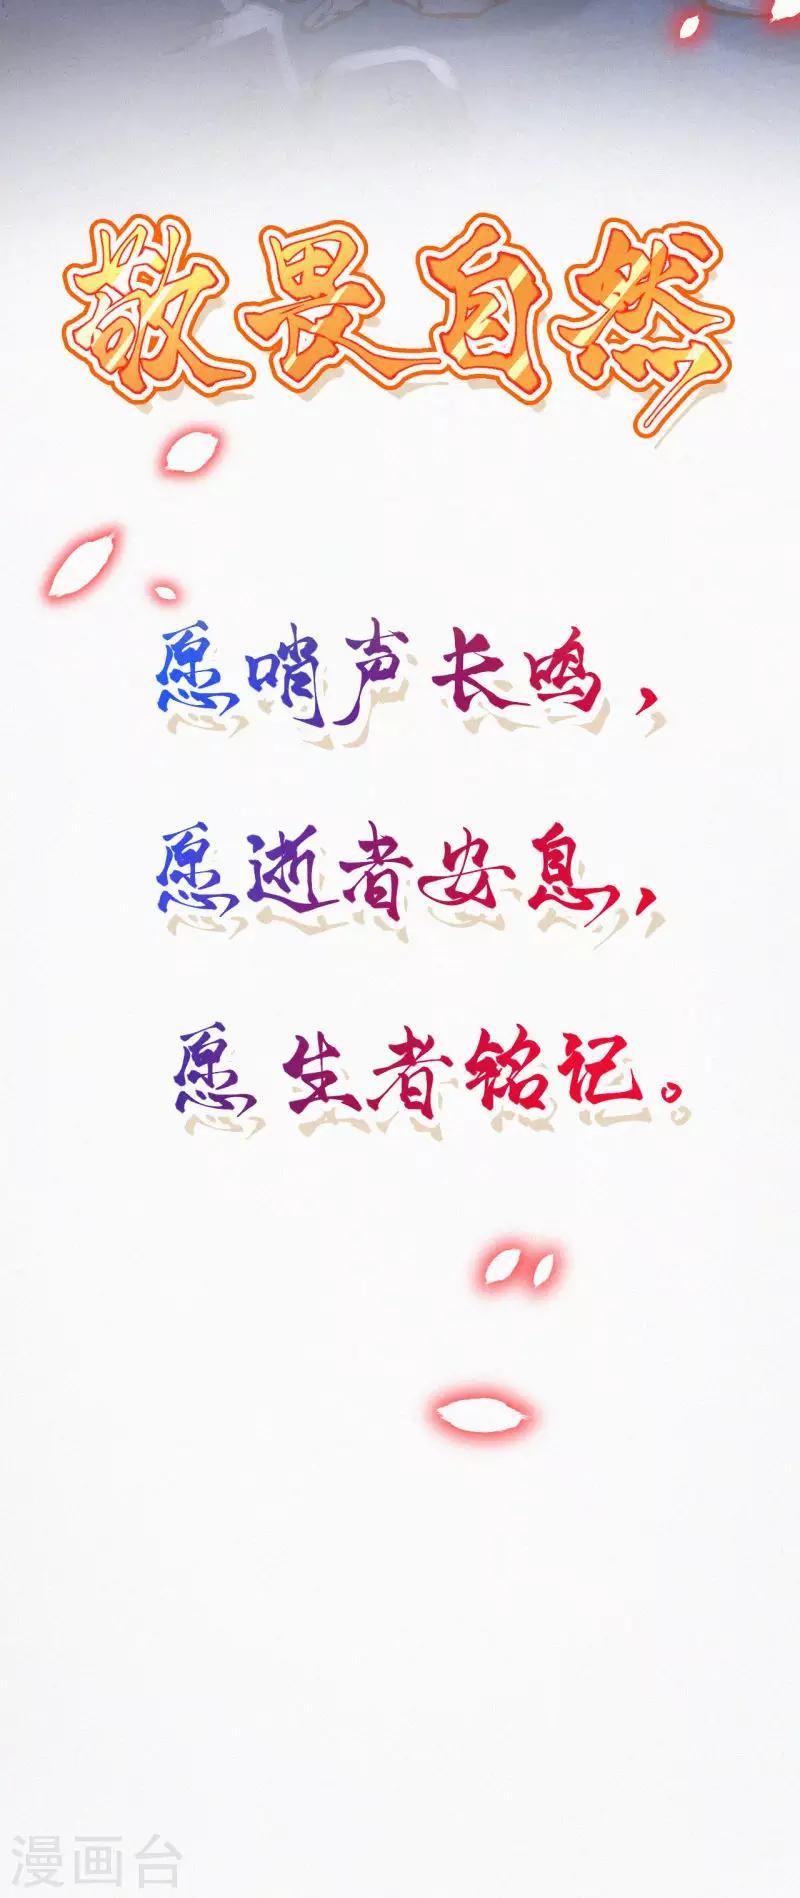 敬畏自然
愿哨声长鸣，
愿逝者安息，
愿生者铭记。
漫画台